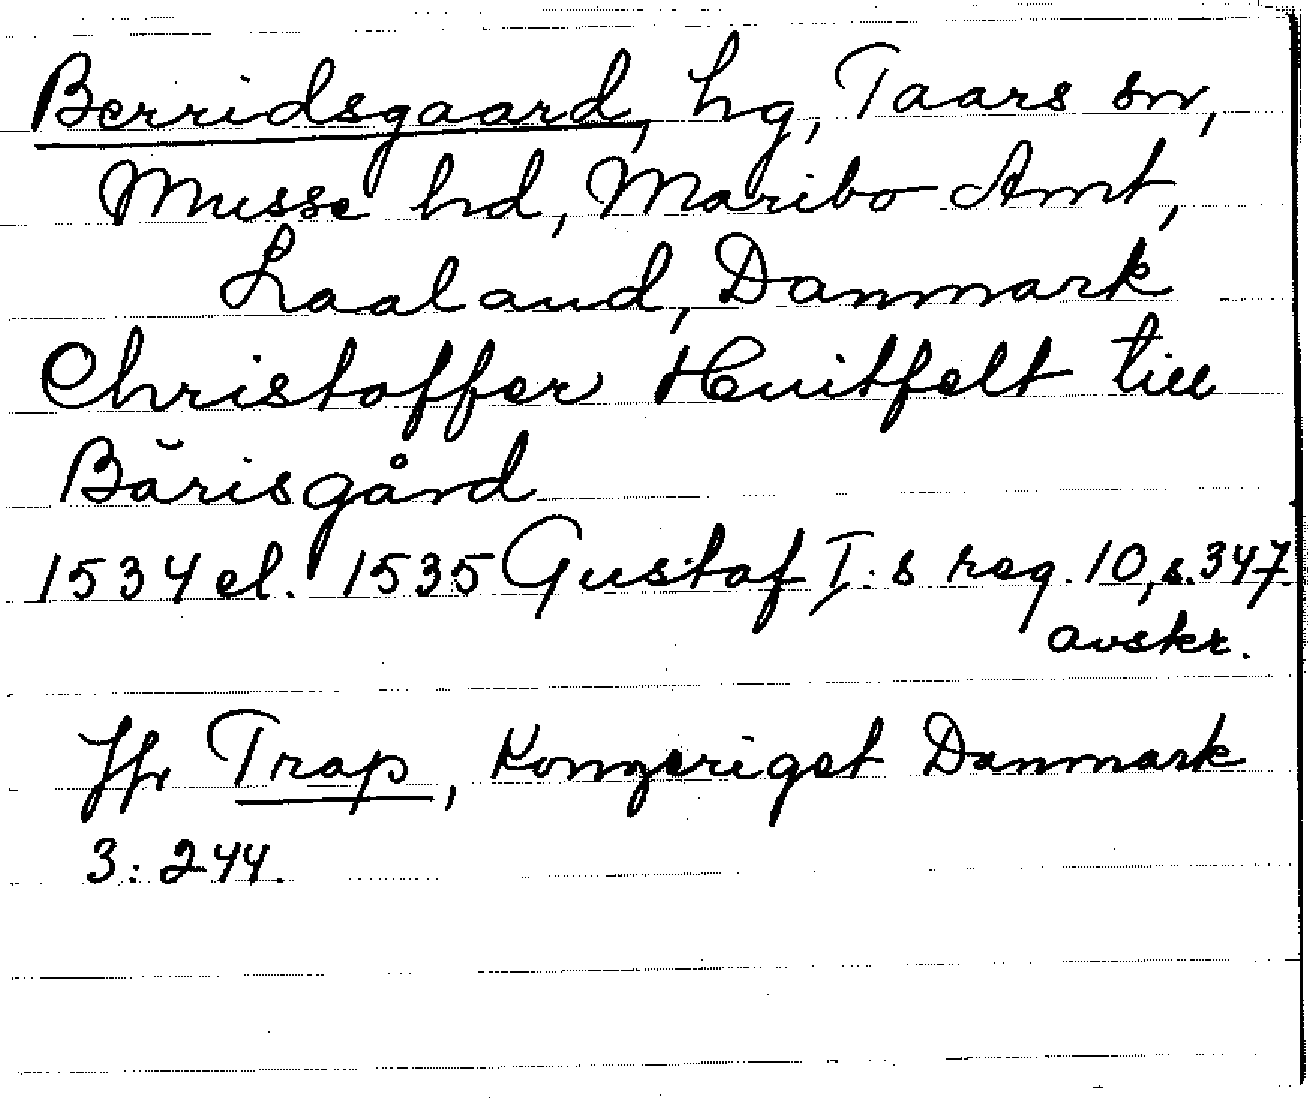 Berridsgaard, hg, Taars sn,
Musse hd, Maribo Amt,
Laaland, Danmark
Christoffer Huitfelt till
Bärisgård
1534 el. 1535 Gustaf I:s reg. 10, s. 347
avskr.
Jfr Trap, Kongeriget Danmark
3: 244.